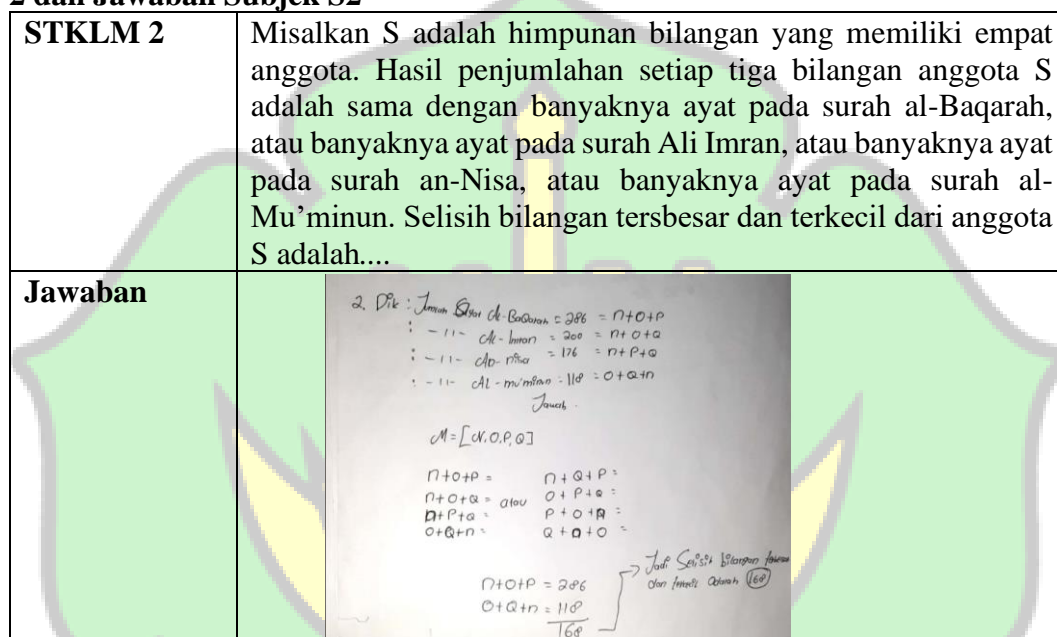 2 dan Jawaban Subjek S2
STKLM 2
Misalkan S adalah himpunan bilangan yang memiliki empat
anggota. Hasil penjumlahan setiap tiga bilangan anggota S
adalah sama dengan banyaknya ayat pada surah al-Baqarah,
atau banyaknya ayat pada surah Ali Imran, atau banyaknya ayat
pada surah an-Nisa, atau banyaknya ayat pada surah al-
Mu’minun. Selisih bilangan tersbesar dan terkecil dari anggota
S adalah....
Jawaban
2. Dik : Jumlah Ayat Al-Baqarah = 286 = n+o+p
: -11- Al-Imron = 200 = n+o+q
: -11- An-nisa = 176 = n+p+q
: -11- AL-mu'minun = 118 = o+q+n
Jawab
M = [N,O,P,Q]
n+o+p = n+q+p =
n+o+q = atau o+p+q =
n+p+q = p+o+n =
o+q+n = q+n+o =
n+o+p = 286
o+q+n = 118
168
Jadi Selisih bilangan
dan adalah 168